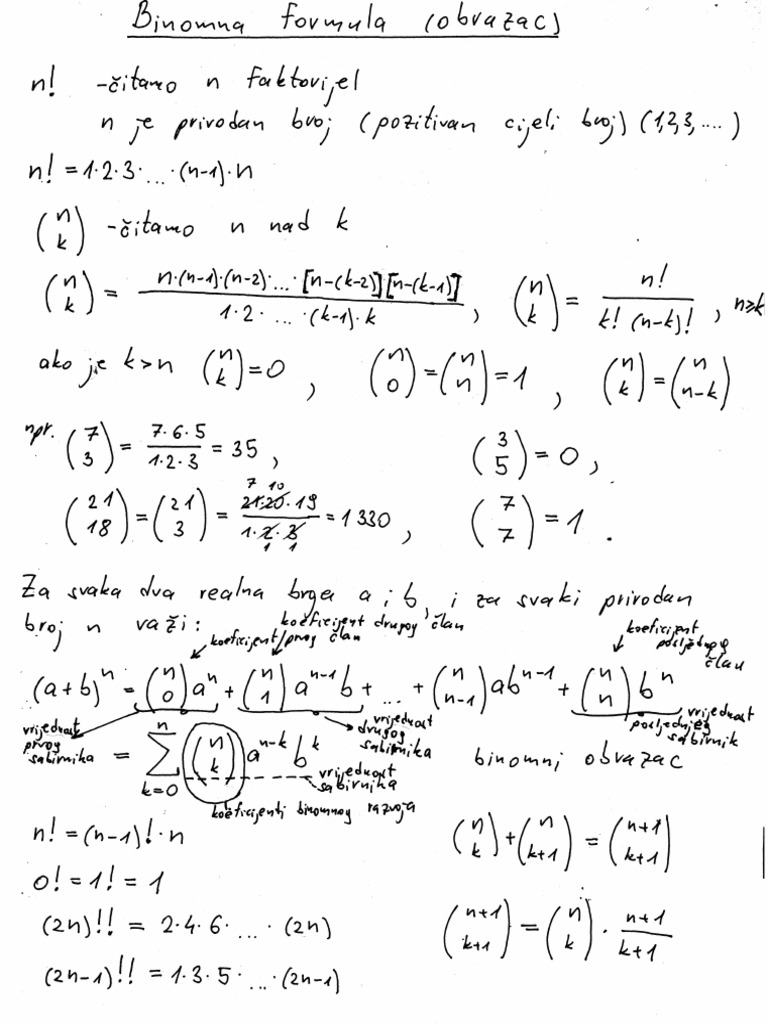 Binomna formula (obrazac)
n! -čitamo n faktorijel
n je prirodan broj (pozitivan cijeli broj) (1,2,3,....)
n! = 1·2·3·...·(n-1)·n
(n k) -čitamo n nad k
(n k) = n·(n-1)·(n-2)·...·[n-(k-2)][n-(k-1)] / 1·2·...·(k-1)·k , (n k) = n! / k!(n-k)! , n≥k
ako je k>n (n k) = 0 , (n 0) = (n n) = 1 , (n k) = (n n-k)
npr. (7 3) = 7·6·5 / 1·2·3 = 35 , (3 5) = 0 ,
(21 18) = (21 3) = 21·20·19 / 1·2·3 = 1330 , (7 7) = 1 .
7 10
1 1
Za svaka dva realna broja a i b, i za svaki prirodan
broj n važi:
koeficijent prvog član
koeficijent drugog član
koeficijent posljednjeg član
(a+b)^n = (n 0) a^n + (n 1) a^(n-1) b + ... + (n n-1) ab^(n-1) + (n n) b^n
vrijednost prvog sabirnika
vrijednost drugog sabirnika
vrijednost posljednjeg sabirnik
= Σ n k=0 (n k) a^(n-k) b^k binomni obrazac
vrijednost sabirnika
koeficijenti binomnog razvoja
n! = (n-1)!·n (n k) + (n k+1) = (n+1 k+1)
0! = 1! = 1
(2n)!! = 2·4·6·...·(2n) (n+1 k+1) = (n k) · n+1 / k+1
(2n-1)!! = 1·3·5·...·(2n-1)